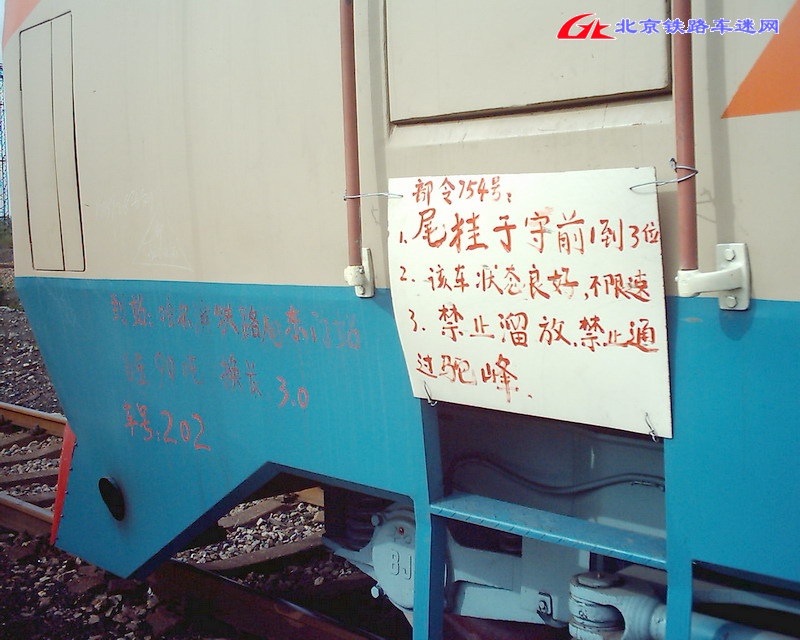 北京铁路车迷网
部令754号:
1. 尾挂于守前1到3位
2. 该车状态良好,不限速
3. 禁止溜放,禁止通
过驼峰.
自重90吨 换长 3.0
车号:202
BJ